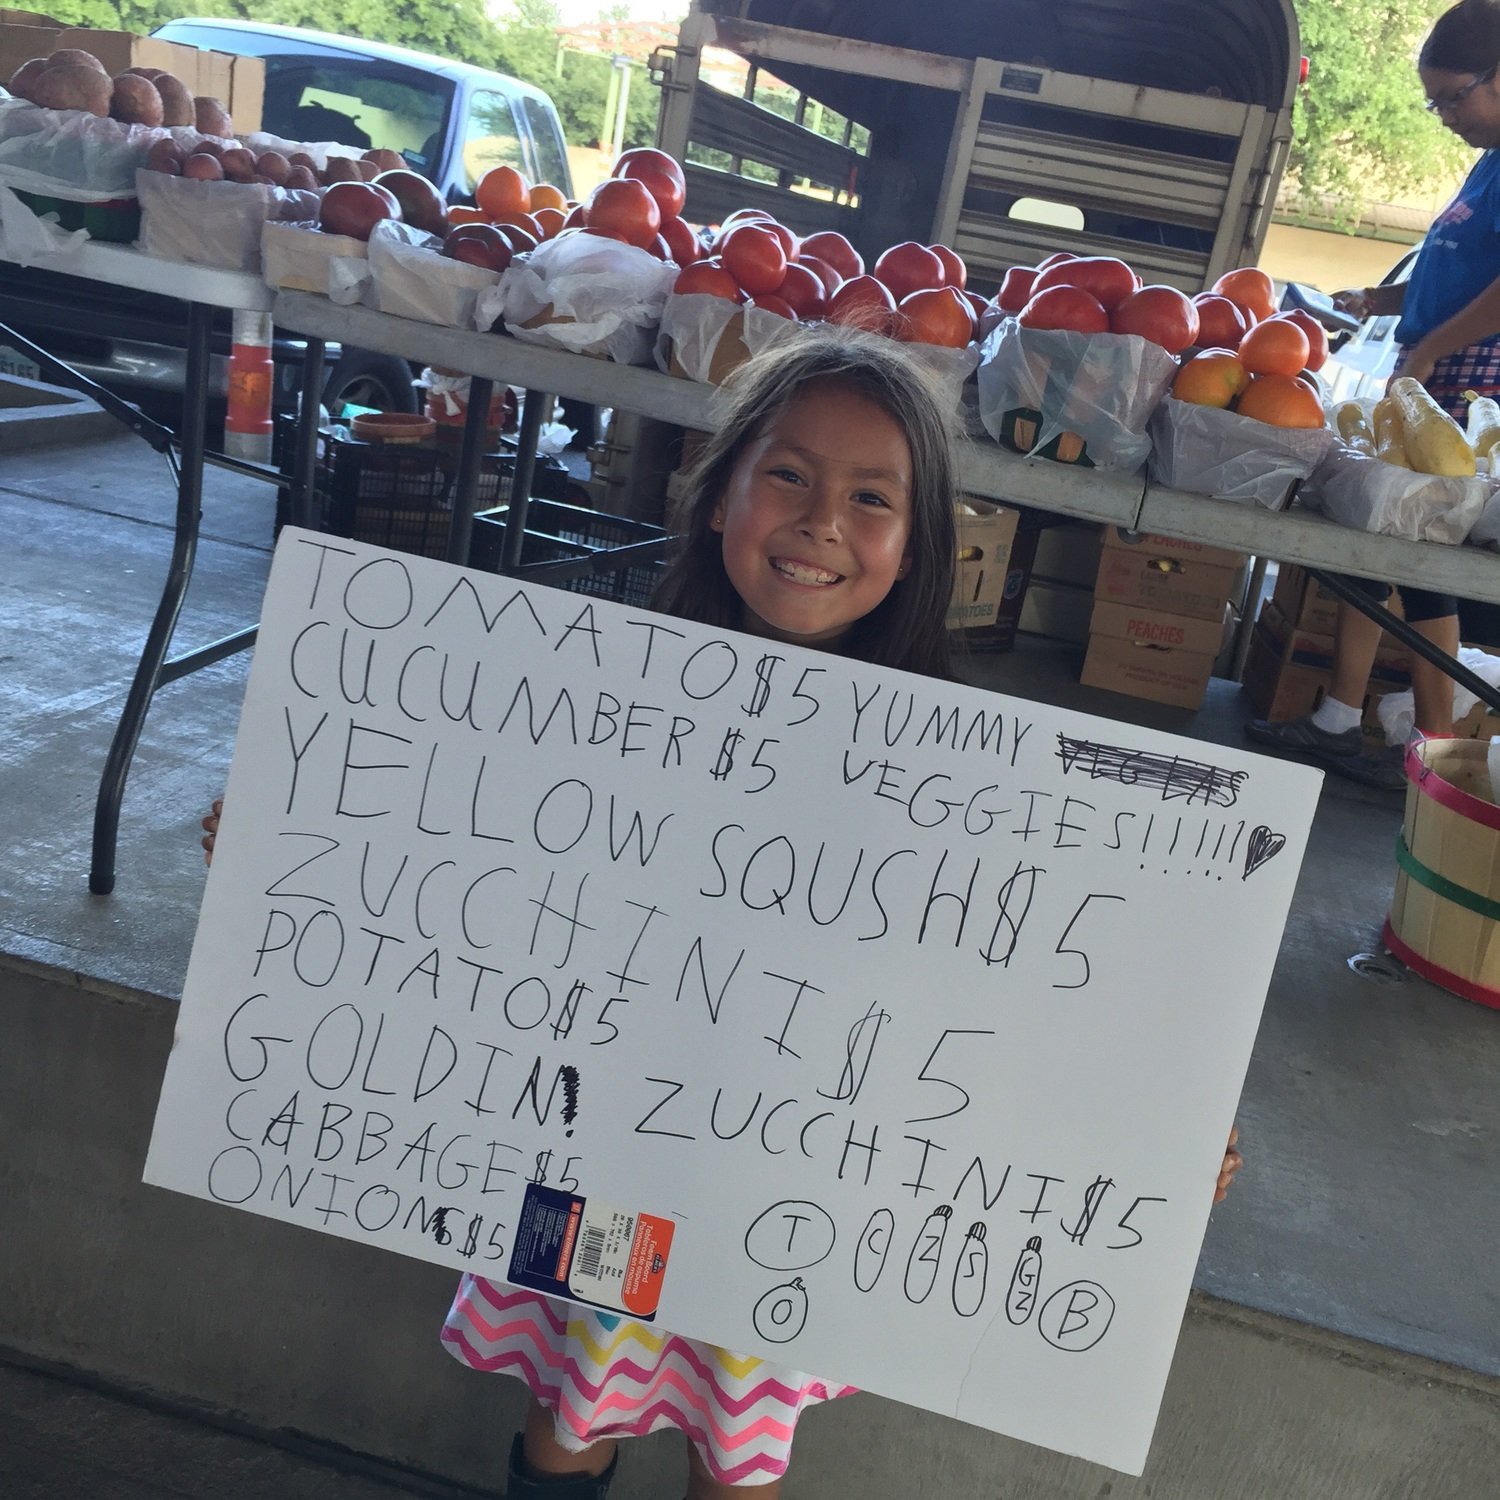 TOMATO $5 YUMMY
CUCUMBER $5 VEGGIES!!!!!
YELLOW SQUSH $5
ZUCCHINI $5
POTATO $5
GOLDIN ZUCCHINI $5
CABBAGE $5
ONIONS $5
T C Z S GZ B
O
Foam Board
950867
PEACHES